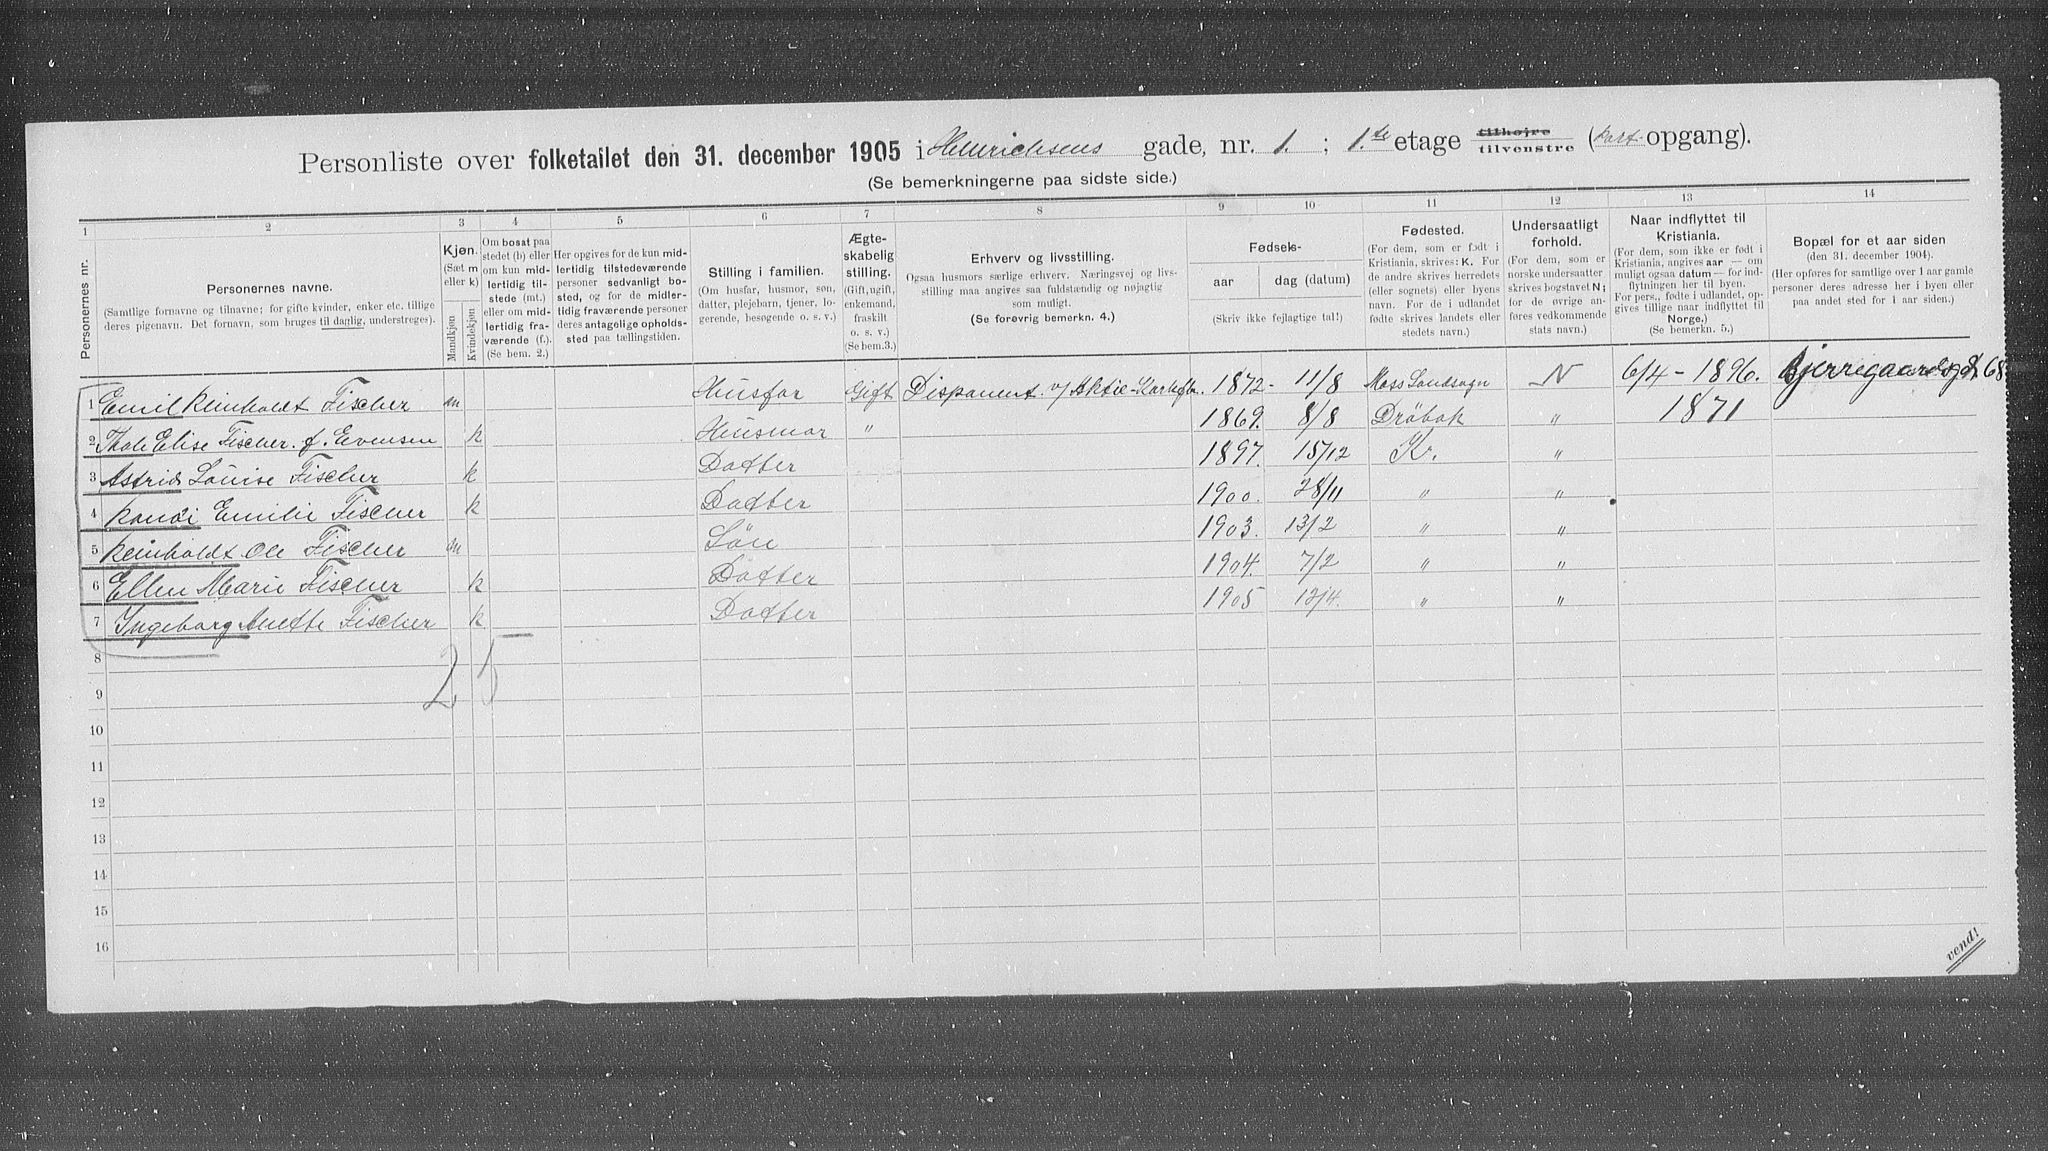 Personliste over folketallet den 31. december 1905 i Heinrichsens gade, nr. 1. ; 1.ste etage tilhøjre tilvenstre (Port opgang).
(Se bemerkningerne paa sidste side.)
1 2 3 4 5 6 7 8 9 10 11 12 13 14
Personernes nr.
Personernes navne.
(Samtlige fornavne og tilnavne; for gifte kvinder, enker etc. tillige
deres pigenavn. Det fornavn, som bruges til daglig, understreges).
Kjøn.
(Sæt m
eller k)
Mandkjøn
Kvindekjøn
Om bosat paa
stedet (b) eller
om kun mid-
lertidig til-
stede (mt.)
eller om mid-
lertidig fra-
værende (f.).
(Se bem. 2.)
Her opgives for de kun mid-
lertidig tilstedeværende
personer sedvanligt bo-
sted, og for de midler-
tidig fraværende personer
deres antagelige opholds-
sted paa tællingstiden.
Stilling i familien.
(Om husfar, husmor, søn,
datter, plejebarn, tjener, lo-
gerende, besøgende o. s. v.)
Ægte-
skabelig
stilling.
(Gift, ugift,
enkemand,
fraskilt
o. s. v.)
(Se bem.3.)
Erhverv og livsstilling.
Ogsaa husmors særlige erhverv. Næringsvej og livs-
stilling maa angives saa fuldstændig og nøjagtig
som muligt.
(Se forøvrig bemerkn. 4.)
Fødsels-
aar dag (datum)
(Skriv ikke fejlagtige tal!)
Fødested.
(For dem, som er født i
Kristiania, skrives: K. For
de andre skrives herredets
(eller sognets) eller byens
navn. For de i udlandet
fødte skrives landets eller
stedets navn.)
Undersaatligt
forhold.
(For dem, som er
norske undersaatter
skrives bogstavet N;
for de øvrige an-
føres vedkommende
stats navn.)
Naar indflyttet til
Kristiania.
(For dem, som ikke er født i
Kristiania, angives aar — om
muligt ogsaa datum — for ind-
flytningen her til byen.
For pers., fødte i udlandet, op-
gives tillige naar indflyttet til
Norge.)
(Se bemerkn. 5.)
Bopæl for et aar siden
(den 31. december 1904).
(Her opføres for samtlige over 1 aar gamle
personer deres adresse her i byen eller
paa andet sted for 1 aar siden.)
1 Emil Reinholdt Fischer m Husfar Gift Disponent v/ Aktie- 1872- 11/8 Moss Landsogn N 6/4 - 1896. Bjerregaardsgd. 68
2 Thale Elise Fischer. f. Evensen k Husmor " 1869. 8/8 Drøbak " 1871
3 Astrid Louise Fischer k Datter 1897. 15/12 Kr. "
4 Randi Emilie Fischer k Datter 1900. 28/11 " "
5 Reinholdt Ole Fischer m Søn 1903. 13/2 " "
6 Ellen Marie Fischer k Datter 1904. 7/2 " "
7 Ingeborg Anette Fischer k Datter 1905 12/4. " "
8
2 5
9
10
11
12
13
14
15
16
vend!